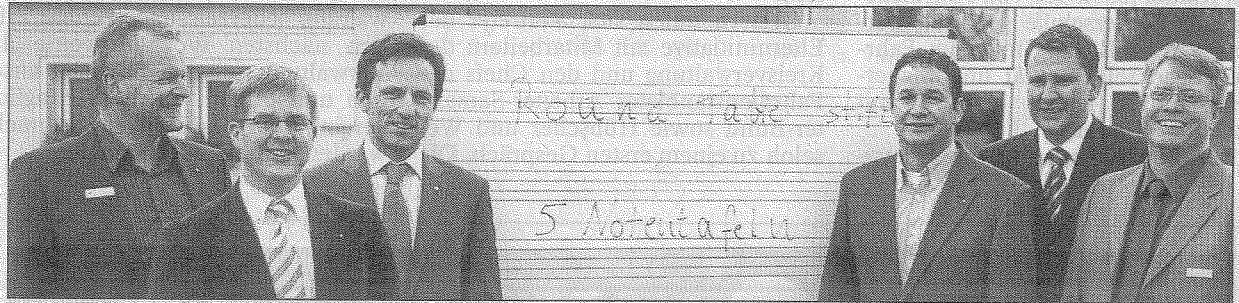 Round Table stift
5 Notentafeln